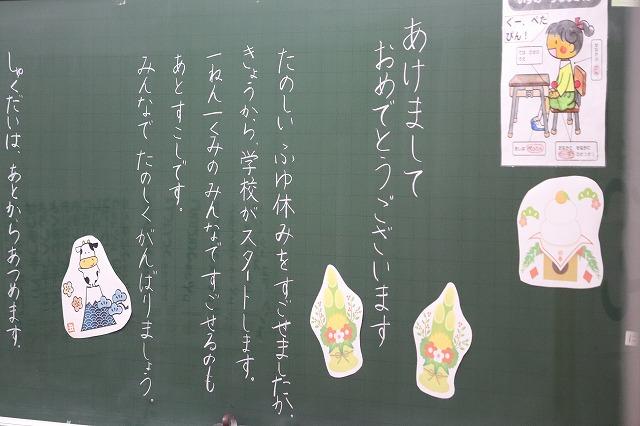 あけまして
おめでとうございます
たのしい ふゆ休みをすごせましたか。
きょうから、学校がスタートします。
一ねん一くみのみんなですごせるのも
あとすこしです。
みんなで たのしくがんばりましょう。
しゅくだいは、あとからあつめます。
ぐー、ぺた
ぴん！